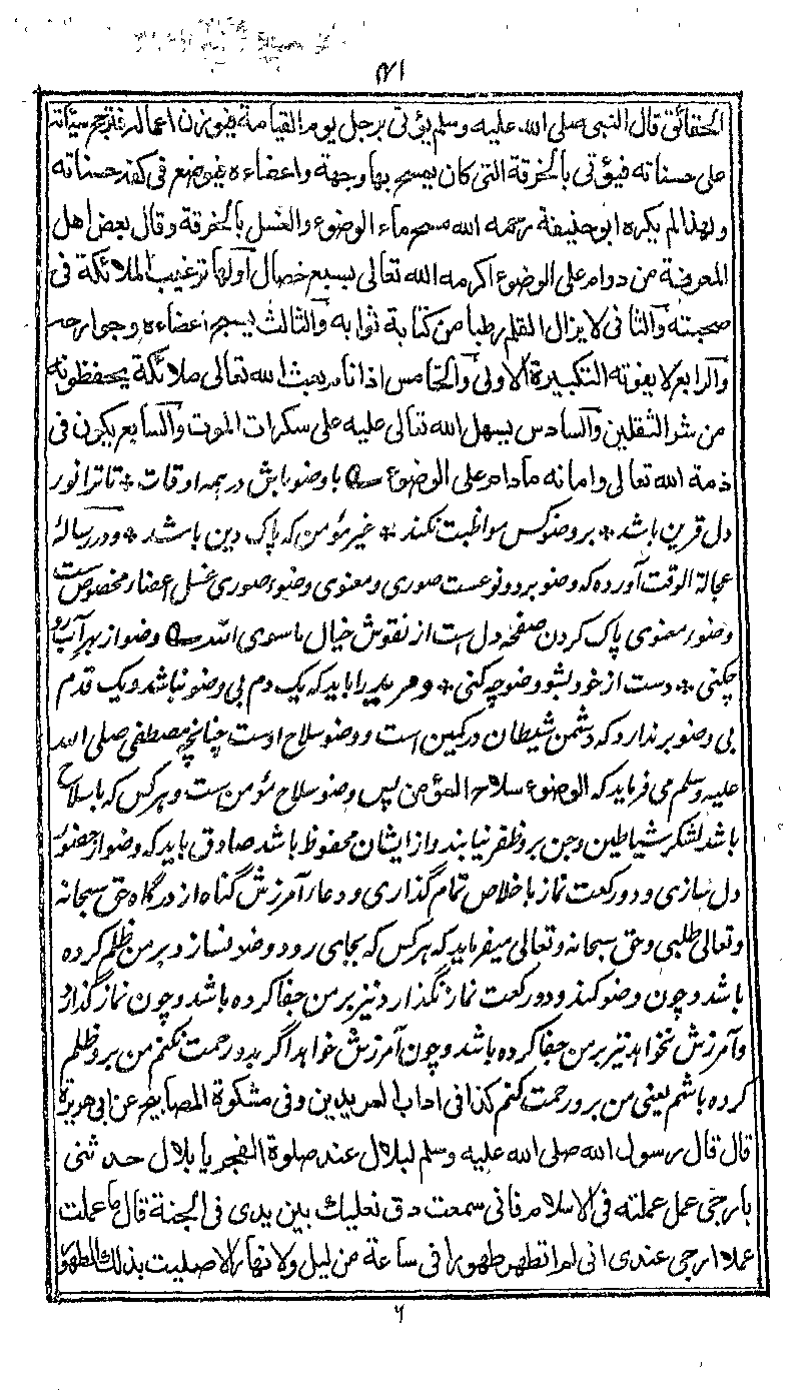 ۱۸۱
الحقائق قال النبي صلى الله عليه وسلم يؤتى برجل يوم القيامة فيوزن اعماله فترجح سيئاته
على حسناته فيؤتى بالخرقة التى كان يمسح بها وجهة واعضاءه فيوضع فى كفة حسناته
ولهذا لم يكره ابو حنيفة رحمه الله مسح ماء الوضوء والغسل بالخرقة وقال بعض اهل
المعرفة من دوام على الوضوء اكرمه الله تعالى بسبع خصال اولها ترغيب الملائكة فى
صحبته والثانى لا يزال القلم رطبا من كتابة ثوابه والثالث يسبح اعضاءه وجوارحه
والرابع لا يفوته التكبيرة الاولى والخامس اذا نام بعث الله تعالى ملائكة يحفظونه
من شر الثقلين والسادس يسهل الله تعالى عليه على سكرات الموت والسابع يكون فى
ذمة الله تعالى وامانه مادام على الوضوء با وضو باش در همه اوقات * تا ترا نور
دل قرین باشد * بر وضو کس مواظبت نکند * غیر مؤمن که پاک دین باشد * ودر رسالهٔ
عجالة الوقت آورده که وضو بر دو نوعست صوری و معنوی وضوء صوری غسل اعضاء مخصوص ست
وضوء معنوی پاک کردن صفحهٔ دل است از نقوش خیال ما سوی الله وضو از بهر آب رو
چکنی * دست از خود بشو وضو چه کنی * و مرید را باید که یک دم بی وضو نباشد و یک قدم
بی وضو بر ندارد که دشمن شیطان در کمین است و وضو سلاح اوست چنانچه مصطفی صلی الله
علیه وسلم می فرماید که الوضوء سلاح المؤمن پس وضو سلاح مؤمن ست و هر کس که با سلاح
باشد لشکر شیاطین و جن بر و ظفر نیابند و از ایشان محفوظ باشد صادق باید که وضو از حضور
دل سازی و دو رکعت نماز با خلاص تمام گذاری و دعاء آمرزش گناه از درگاه حق سبحانه
وتعالی طلبی و حق سبحانه وتعالی میفرماید که هر کس که بجای رود وضو نسازد بر من ظلم کرده
باشد و چون وضو کند و دو رکعت نماز نگذارد نیز بر من جفا کرده باشد و چون نماز گذارد
و آمرزش نخواهد نیز بر من جفا کرده باشد و چون آمرزش خواهد اگر بدو رحمت نکنم من بر و ظلم
کرده باشم یعنی من بر و رحمت کنم کذا فى اداب المريدين وفى مشكوة المصابيح عن ابى هريرة
قال قال رسول الله صلى الله عليه وسلم لبلال عند صلوة الفجر يا بلال حدثنى
بارجى عمل عملته فى الاسلام فانى سمعت دق نعليك بين يدى فى الجنة قال ما عملت
عملا ارجى عندى انى لم اتطهر طهورا فى ساعة من ليل ولا نهار الا صليت بذلك الطهور
۶